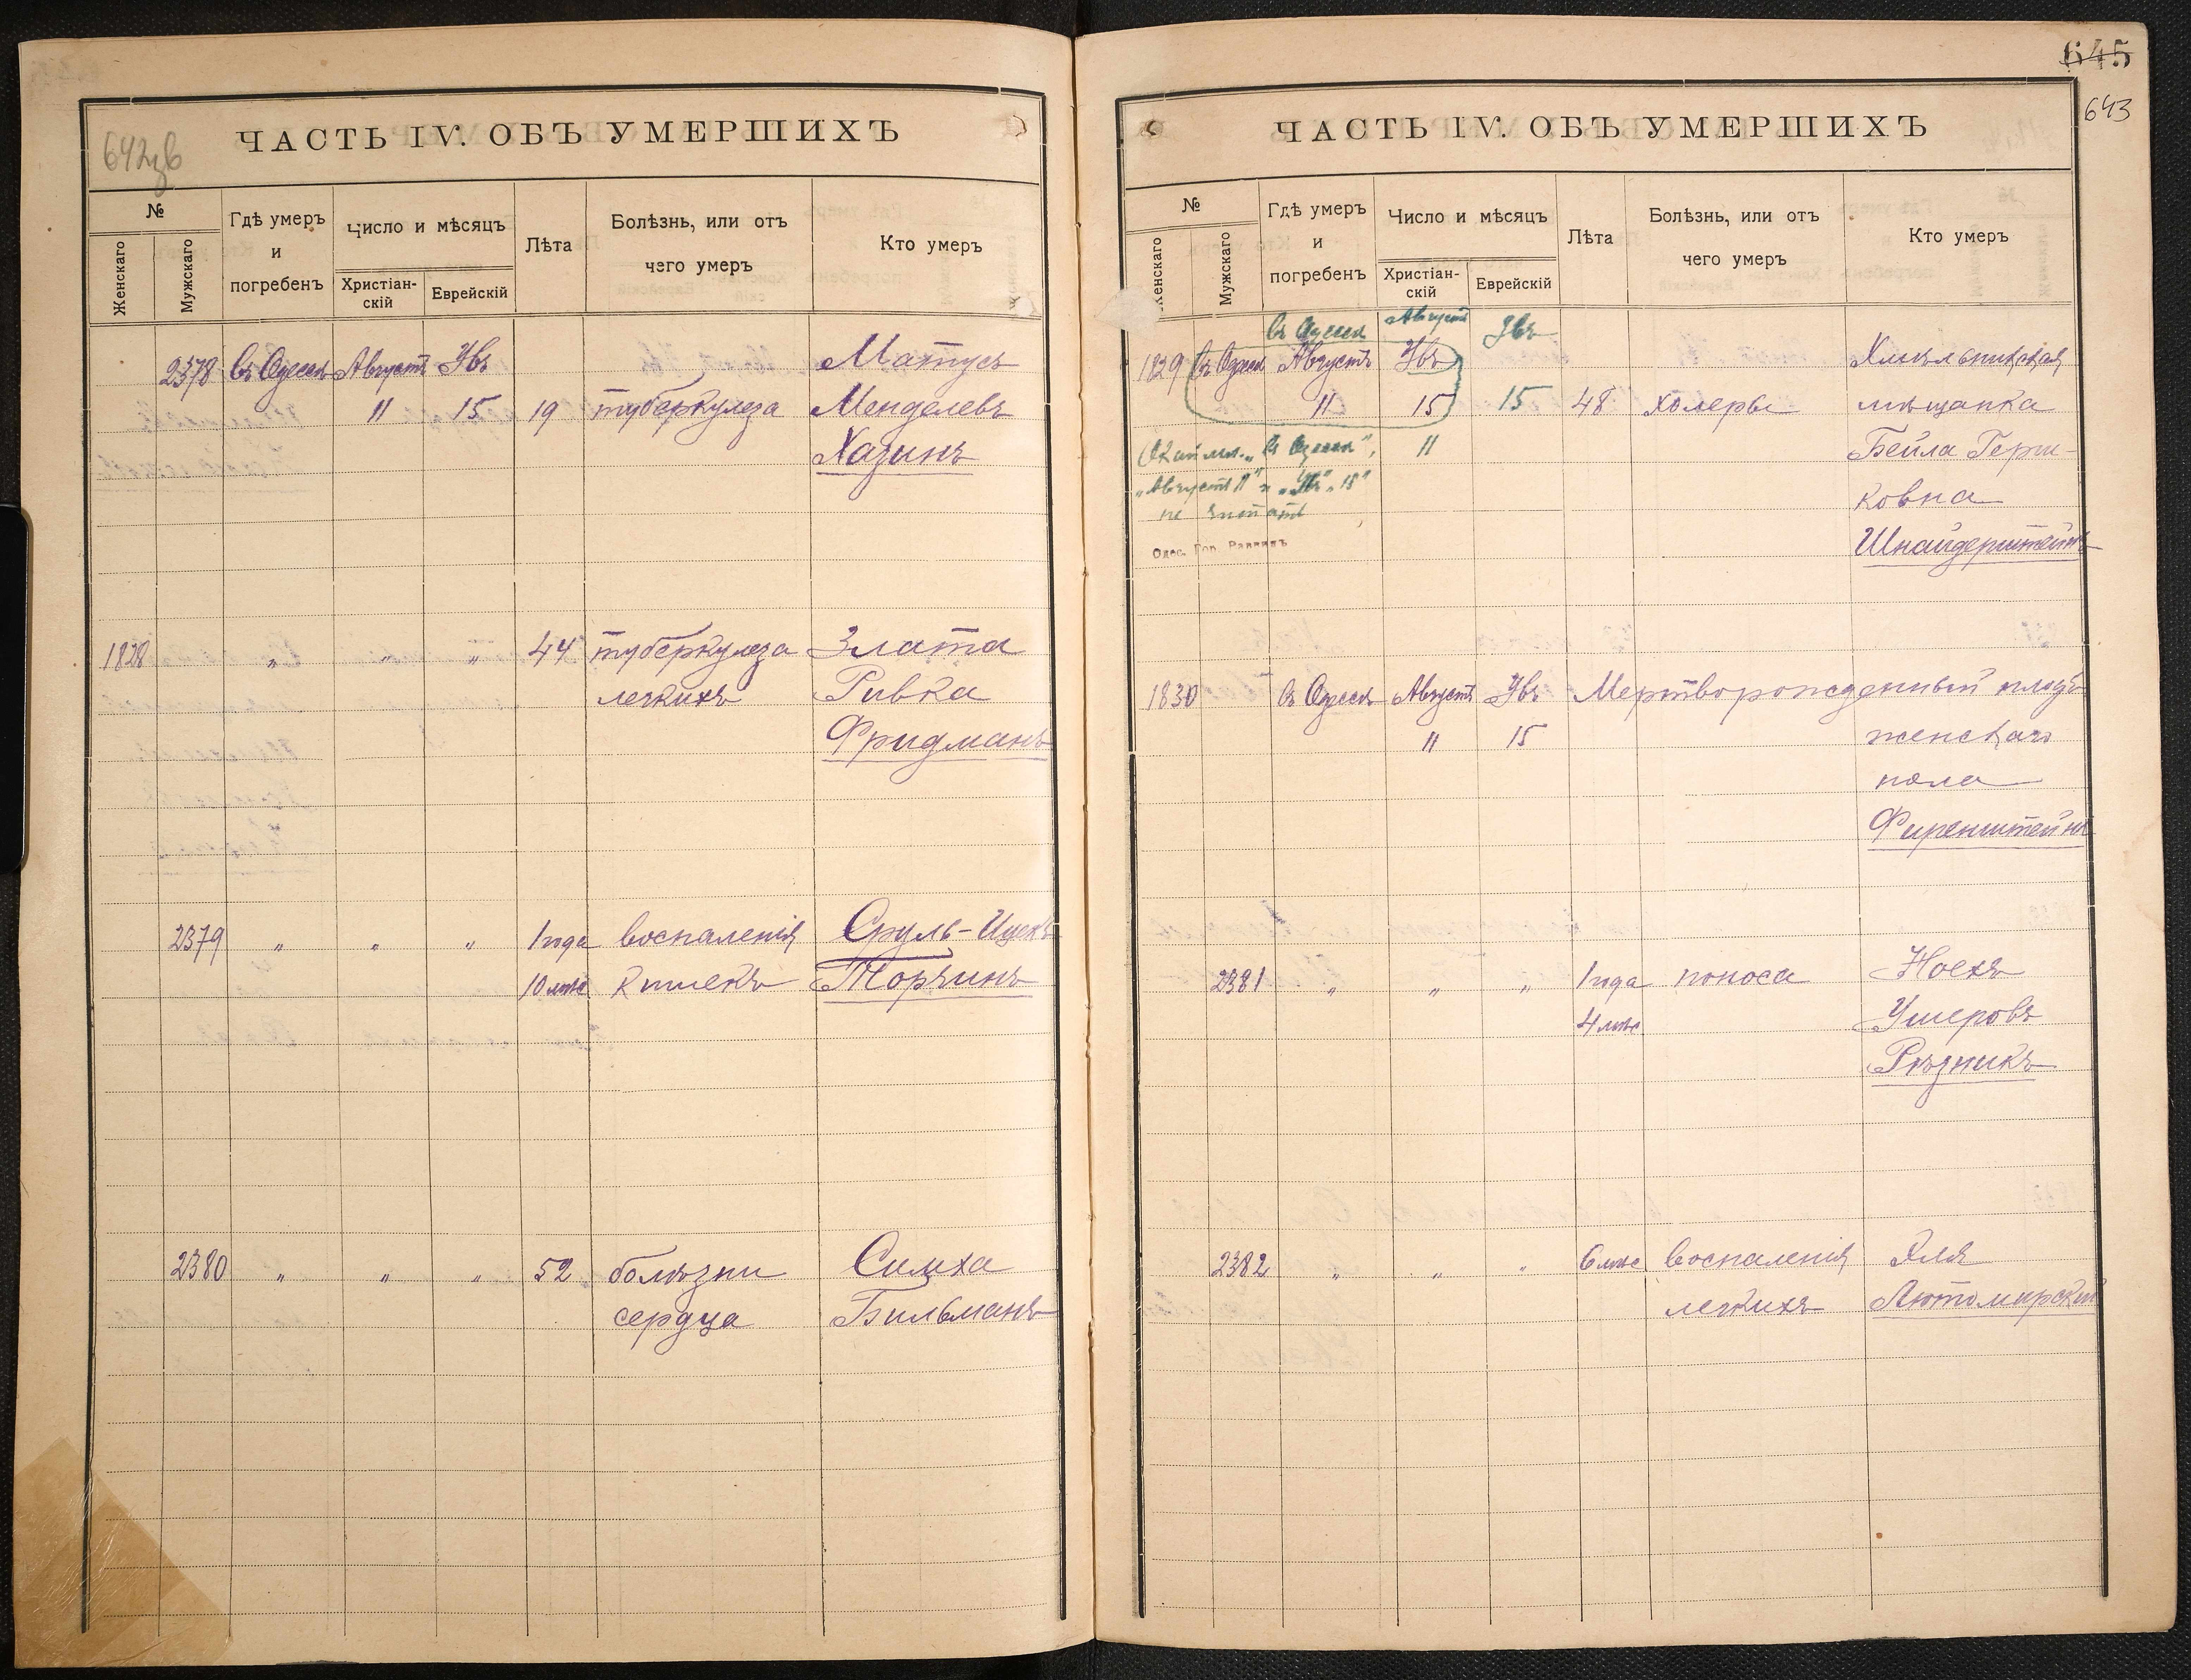 642об
ЧАСТЬ IV. ОБЪ УМЕРШИХЪ
№
Женскаго
Мужскаго
Гдѣ умеръ
и
погребенъ
Число и мѣсяцъ
Христіан-
скій
Еврейскій
Лѣта
Болѣзнь, или отъ
чего умеръ
Кто умеръ
2378 въ Одессѣ Августъ Увъ Матусъ
11 15 19 туберкулеза Менделевъ
Хазинъ
1828 " " " 44 туберкулеза Злата
легкихъ Ривка
Фридманъ
2379 " " " 1 года воспаленія Сруль-Ицекъ
10 мѣс кишекъ Торчинъ
2380 " " " 52 болѣзни Симха
сердца Бильманъ
645
643
ЧАСТЬ IV. ОБЪ УМЕРШИХЪ
№
Женскаго
Мужскаго
Гдѣ умеръ
и
погребенъ
Число и мѣсяцъ
Христіан-
скій
Еврейскій
Лѣта
Болѣзнь, или отъ
чего умеръ
Кто умеръ
въ Одессѣ Августъ Увъ
1829 въ Одессѣ Августъ Увъ Хмѣльницкая
11 15 15 48 холеры мѣщанка
"въ Одессѣ", 11 Бейла Герш-
"Августъ 11" и "Увъ 15" ковна
не читать
Одес. Гор. Раввинъ Шнайдерштейнъ
1830 въ Одессѣ Августъ Увъ Мертворожденный плодъ
11 15 женскаго
пола
Фиренштейнъ
2381 " " " 1 года поноса Ноехъ
4 мѣс Ушеровъ
Рѣзникъ
2382 " " " 6 мѣс воспаленія Эля
легкихъ Лютомирскій